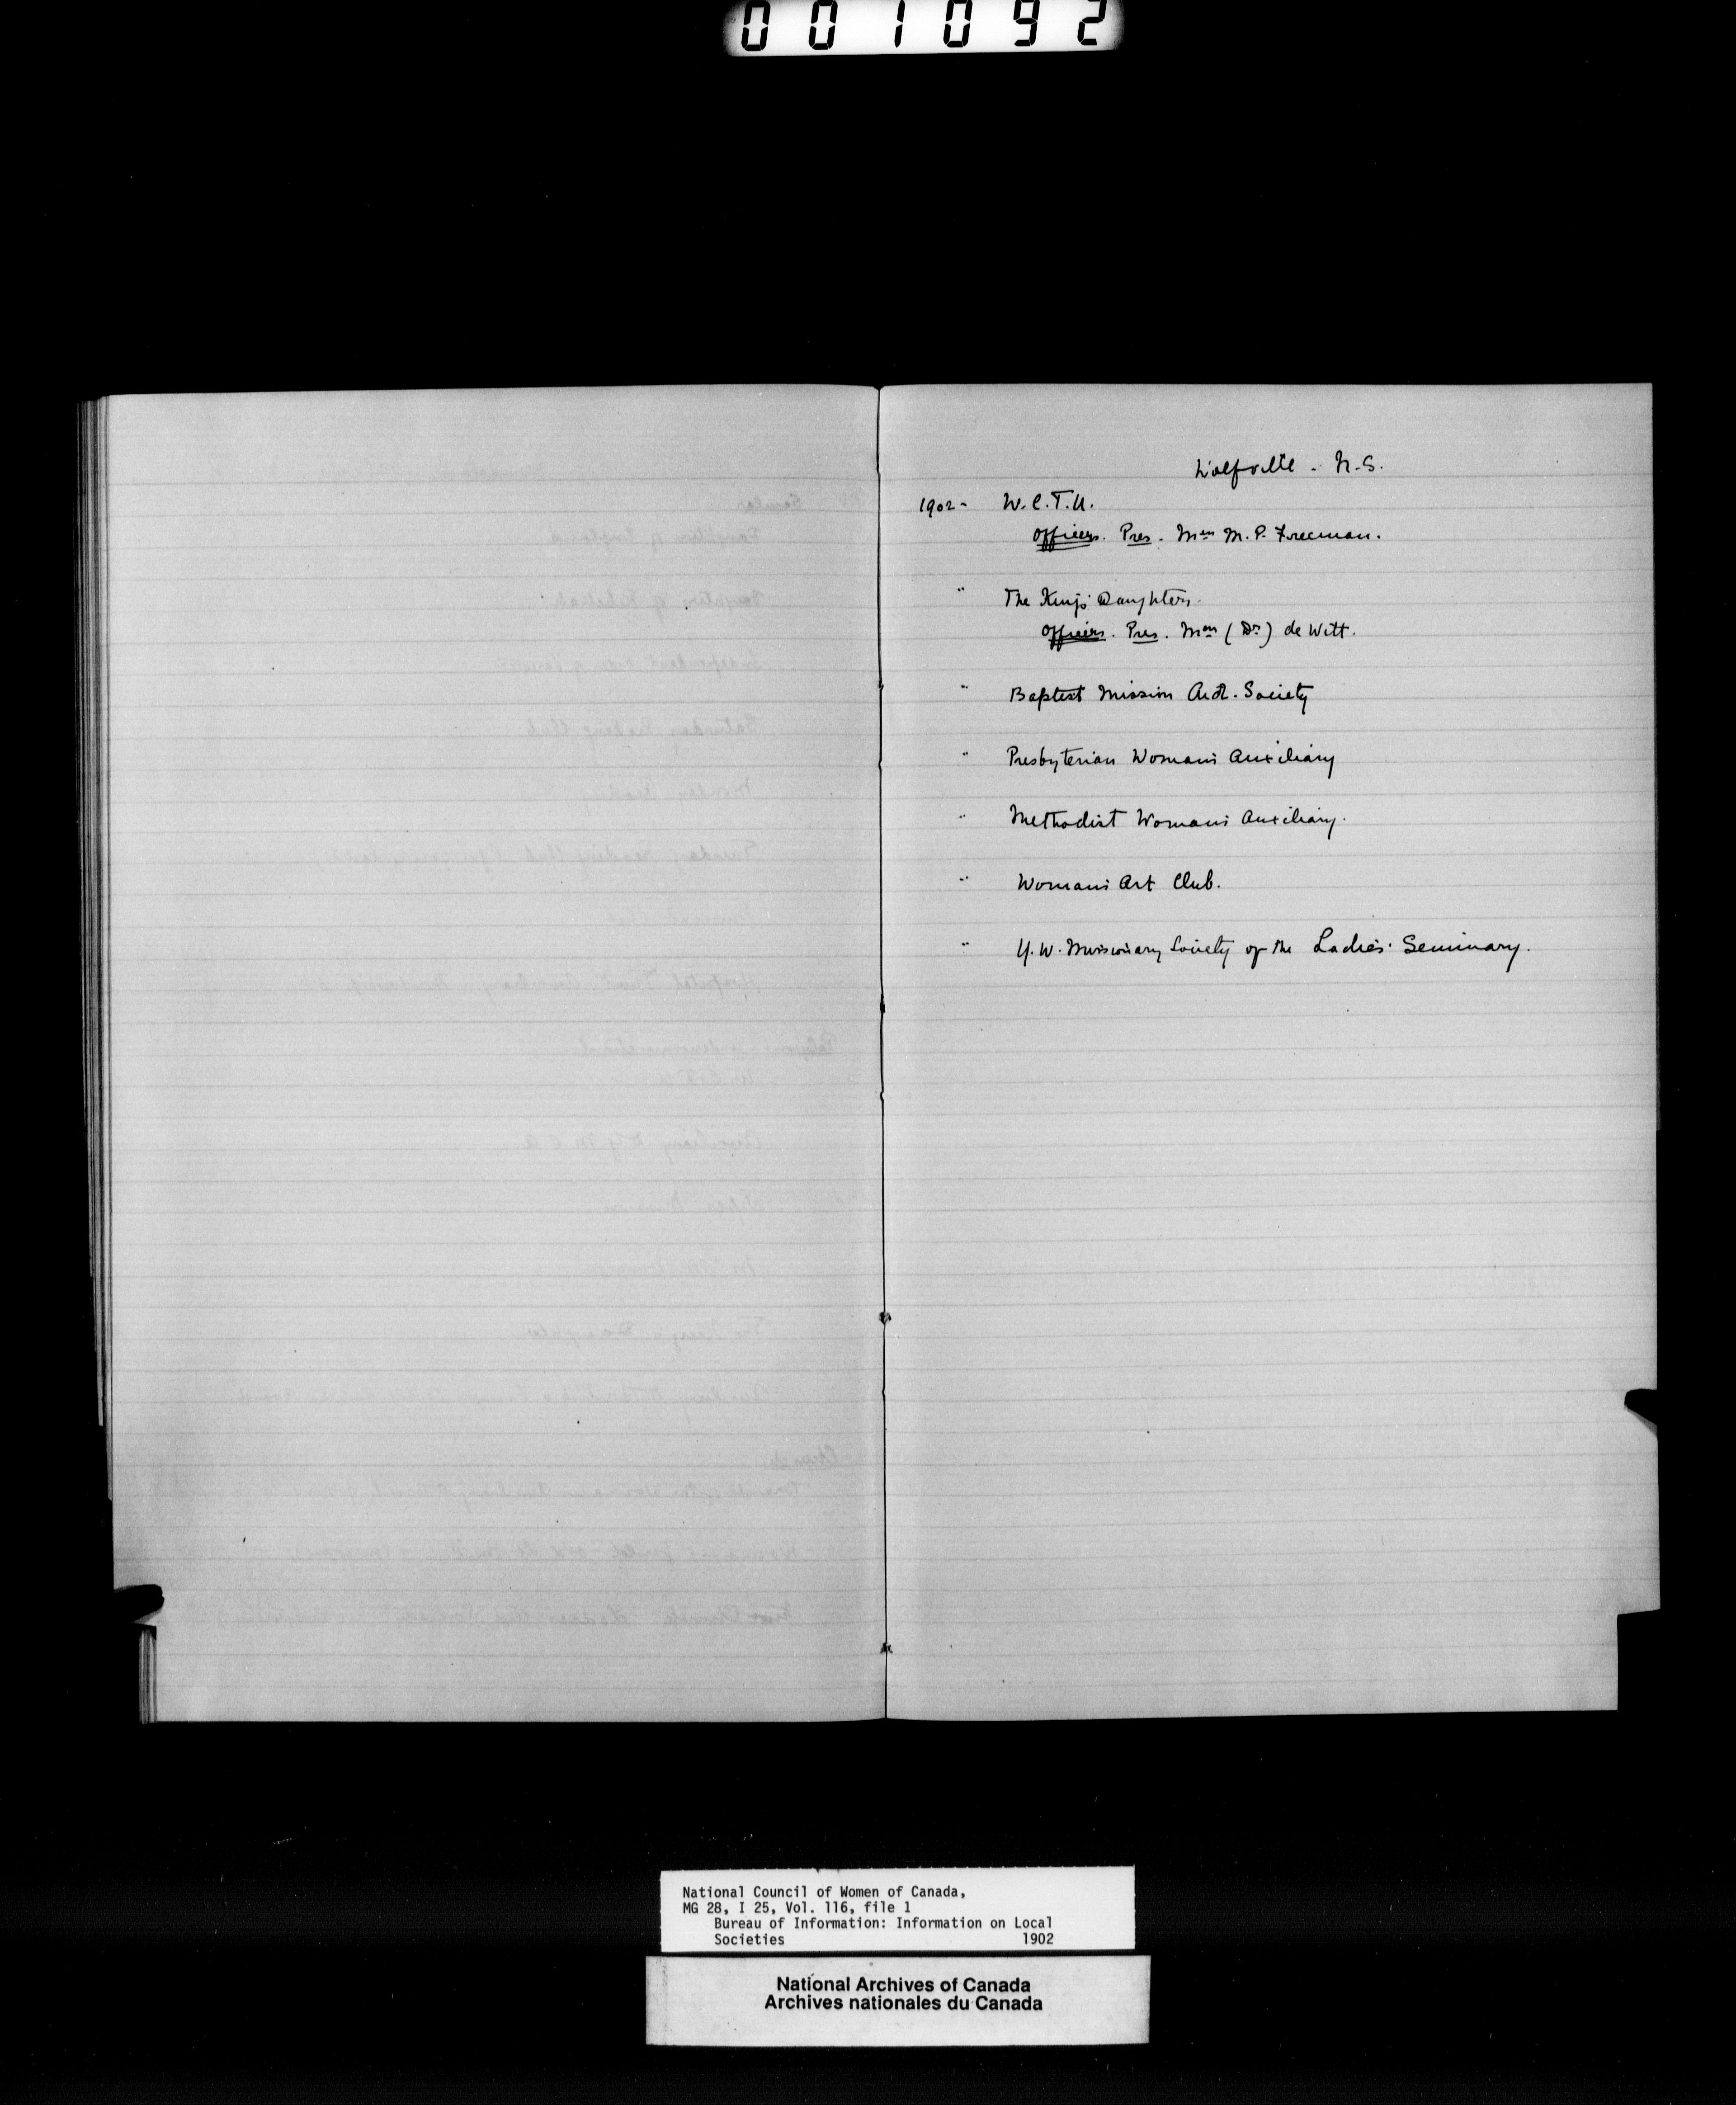 001092
Wolfville - N.S.
1902 - W.C.T.U.
Officers. Pres. Mrs M. P. Freeman.
" The King's Daughters.
Officers. Pres. Mrs (Dr) de Witt.
" Baptist Mission Aid-Society
" Presbyterian Woman's Auxiliary
" Methodist Woman's Auxiliary.
" Woman's Art Club.
" Y.W. Missionary Society of the Ladies' Seminary.
National Council of Women of Canada,
MG 28, I 25, Vol. 116, file 1
Bureau of Information: Information on Local
Societies 1902
National Archives of Canada
Archives nationales du Canada